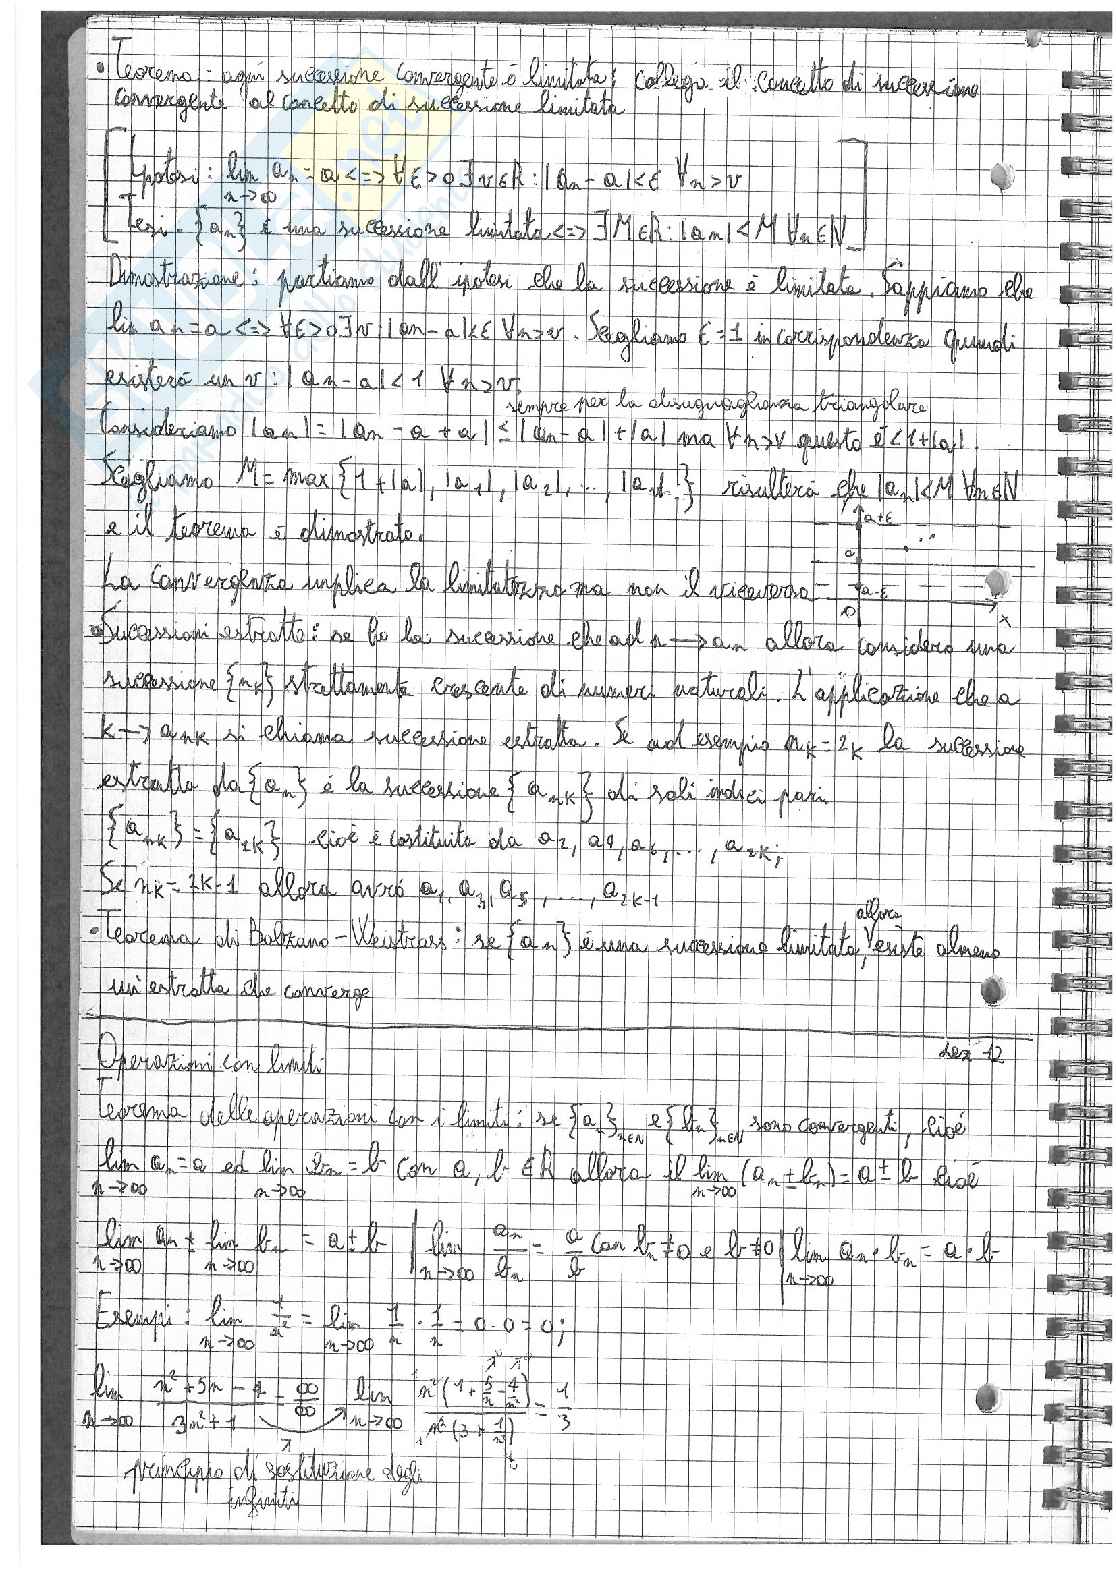 • Teorema = ogni successione convergente è limitata; collega il concetto di successione
convergente al concetto di successione limitata
Ipotesi: lim n→∞ an = a <=> ∀ε>0 ∃ν∈R : |an - a|<ε ∀n>ν
Tesi: {an} è una successione limitata <=> ∃M∈R: |an|<M ∀n∈N
Dimostrazione: partiamo dall'ipotesi che la successione è limitata. Sappiamo che
lim an = a <=> ∀ε>0 ∃ν: |an - a|<ε ∀n>ν. Scegliamo ε=1 in corrispondenza quindi
esisterà un ν: |an - a|<1 ∀n>ν.
sempre per la disuguaglianza triangolare
Consideriamo |an| = |an - a + a| ≤ |an - a| + |a| ma ∀n>ν questo è <1+|a|.
Scegliamo M = max{1+|a|, |a1|, |a2|, ..., } risulterà che |an|<M ∀n∈N
a+ε
e il teorema è dimostrato.
a
La convergenza implica la limitatezza ma non il viceversa
a-ε
0
x
• Successioni estratte: se ho la successione che ad n → an allora considero una
successione {nk} strettamente crescente di numeri naturali. L'applicazione che a
k → ank si chiama successione estratta. Se ad esempio nk = 2k la successione
estratta da {an} è la successione {ank} di soli indici pari
{ank} = {a2k} cioè è costituita da a2, a4, a6, ..., a2k;
Se nk = 2k-1 allora avrò a1, a3, a5, ..., a2k-1
allora
• Teorema di Bolzano-Weistrass: se {an} è una successione limitata, esiste almeno
un'estratta che converge
Lez 12
Operazioni con limiti
Teorema delle operazioni con i limiti: se {an}n∈N e {bn}n∈N sono convergenti, cioè
lim n→∞ an = a ed lim n→∞ bn = b con a, b ∈R allora il lim n→∞ (an ± bn) = a ± b cioè
lim n→∞ an ± lim n→∞ bn = a ± b | lim n→∞ an/bn = a/b con bn ≠ 0 e b ≠ 0 | lim n→∞ an · bn = a · b
Esempi: lim n→∞ 1/n² = lim n→∞ 1/n · 1/n = 0·0 = 0;
lim n→∞ (n²+5n-4)/(3n²+1) = ∞/∞ lim n→∞ n²(1+5/n-4/n²)/n²(3+1/n²) = 1/3
principio di sostituzione degli
infiniti